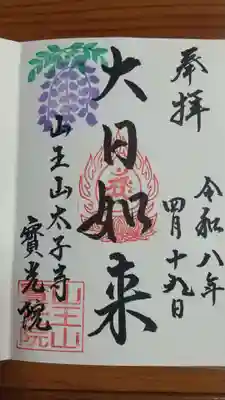 奉拝
令和八年
四月十九日
大日如来
山王山太子寺
寳光院
山王山